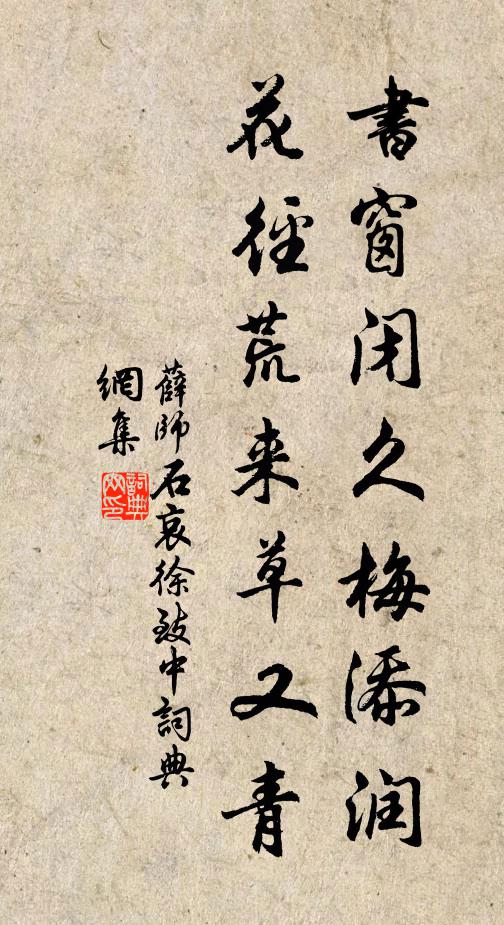 書窗闭久梅添润
花徑荒来草又青
薛師石哀徐致中詞典
網集
詞典
网印